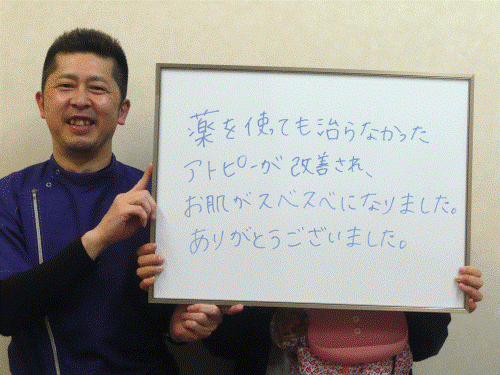 薬を使っても治らなかった
アトピーが改善され、
お肌がスベスベになりました。
ありがとうございました。